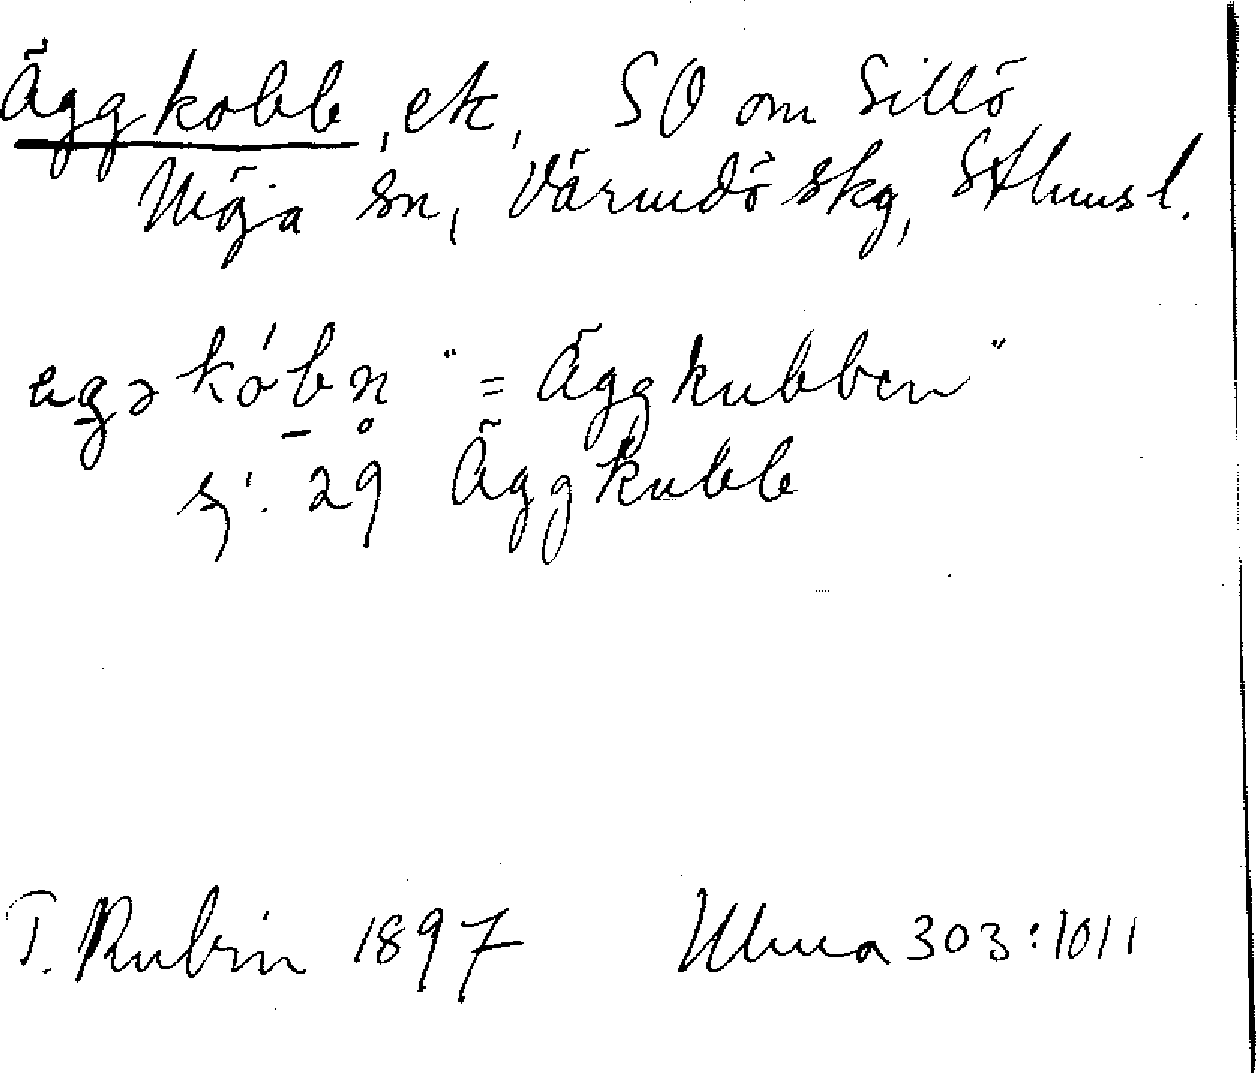 Äggkobb, ek, SO om Sillö
Möja sn, Värmdö skg, Sthmsl.
egəkóbn̥ "= Äggkubben"
sj: 29 Äggkubb
T. Rubin 1897 Ulma 303:1011